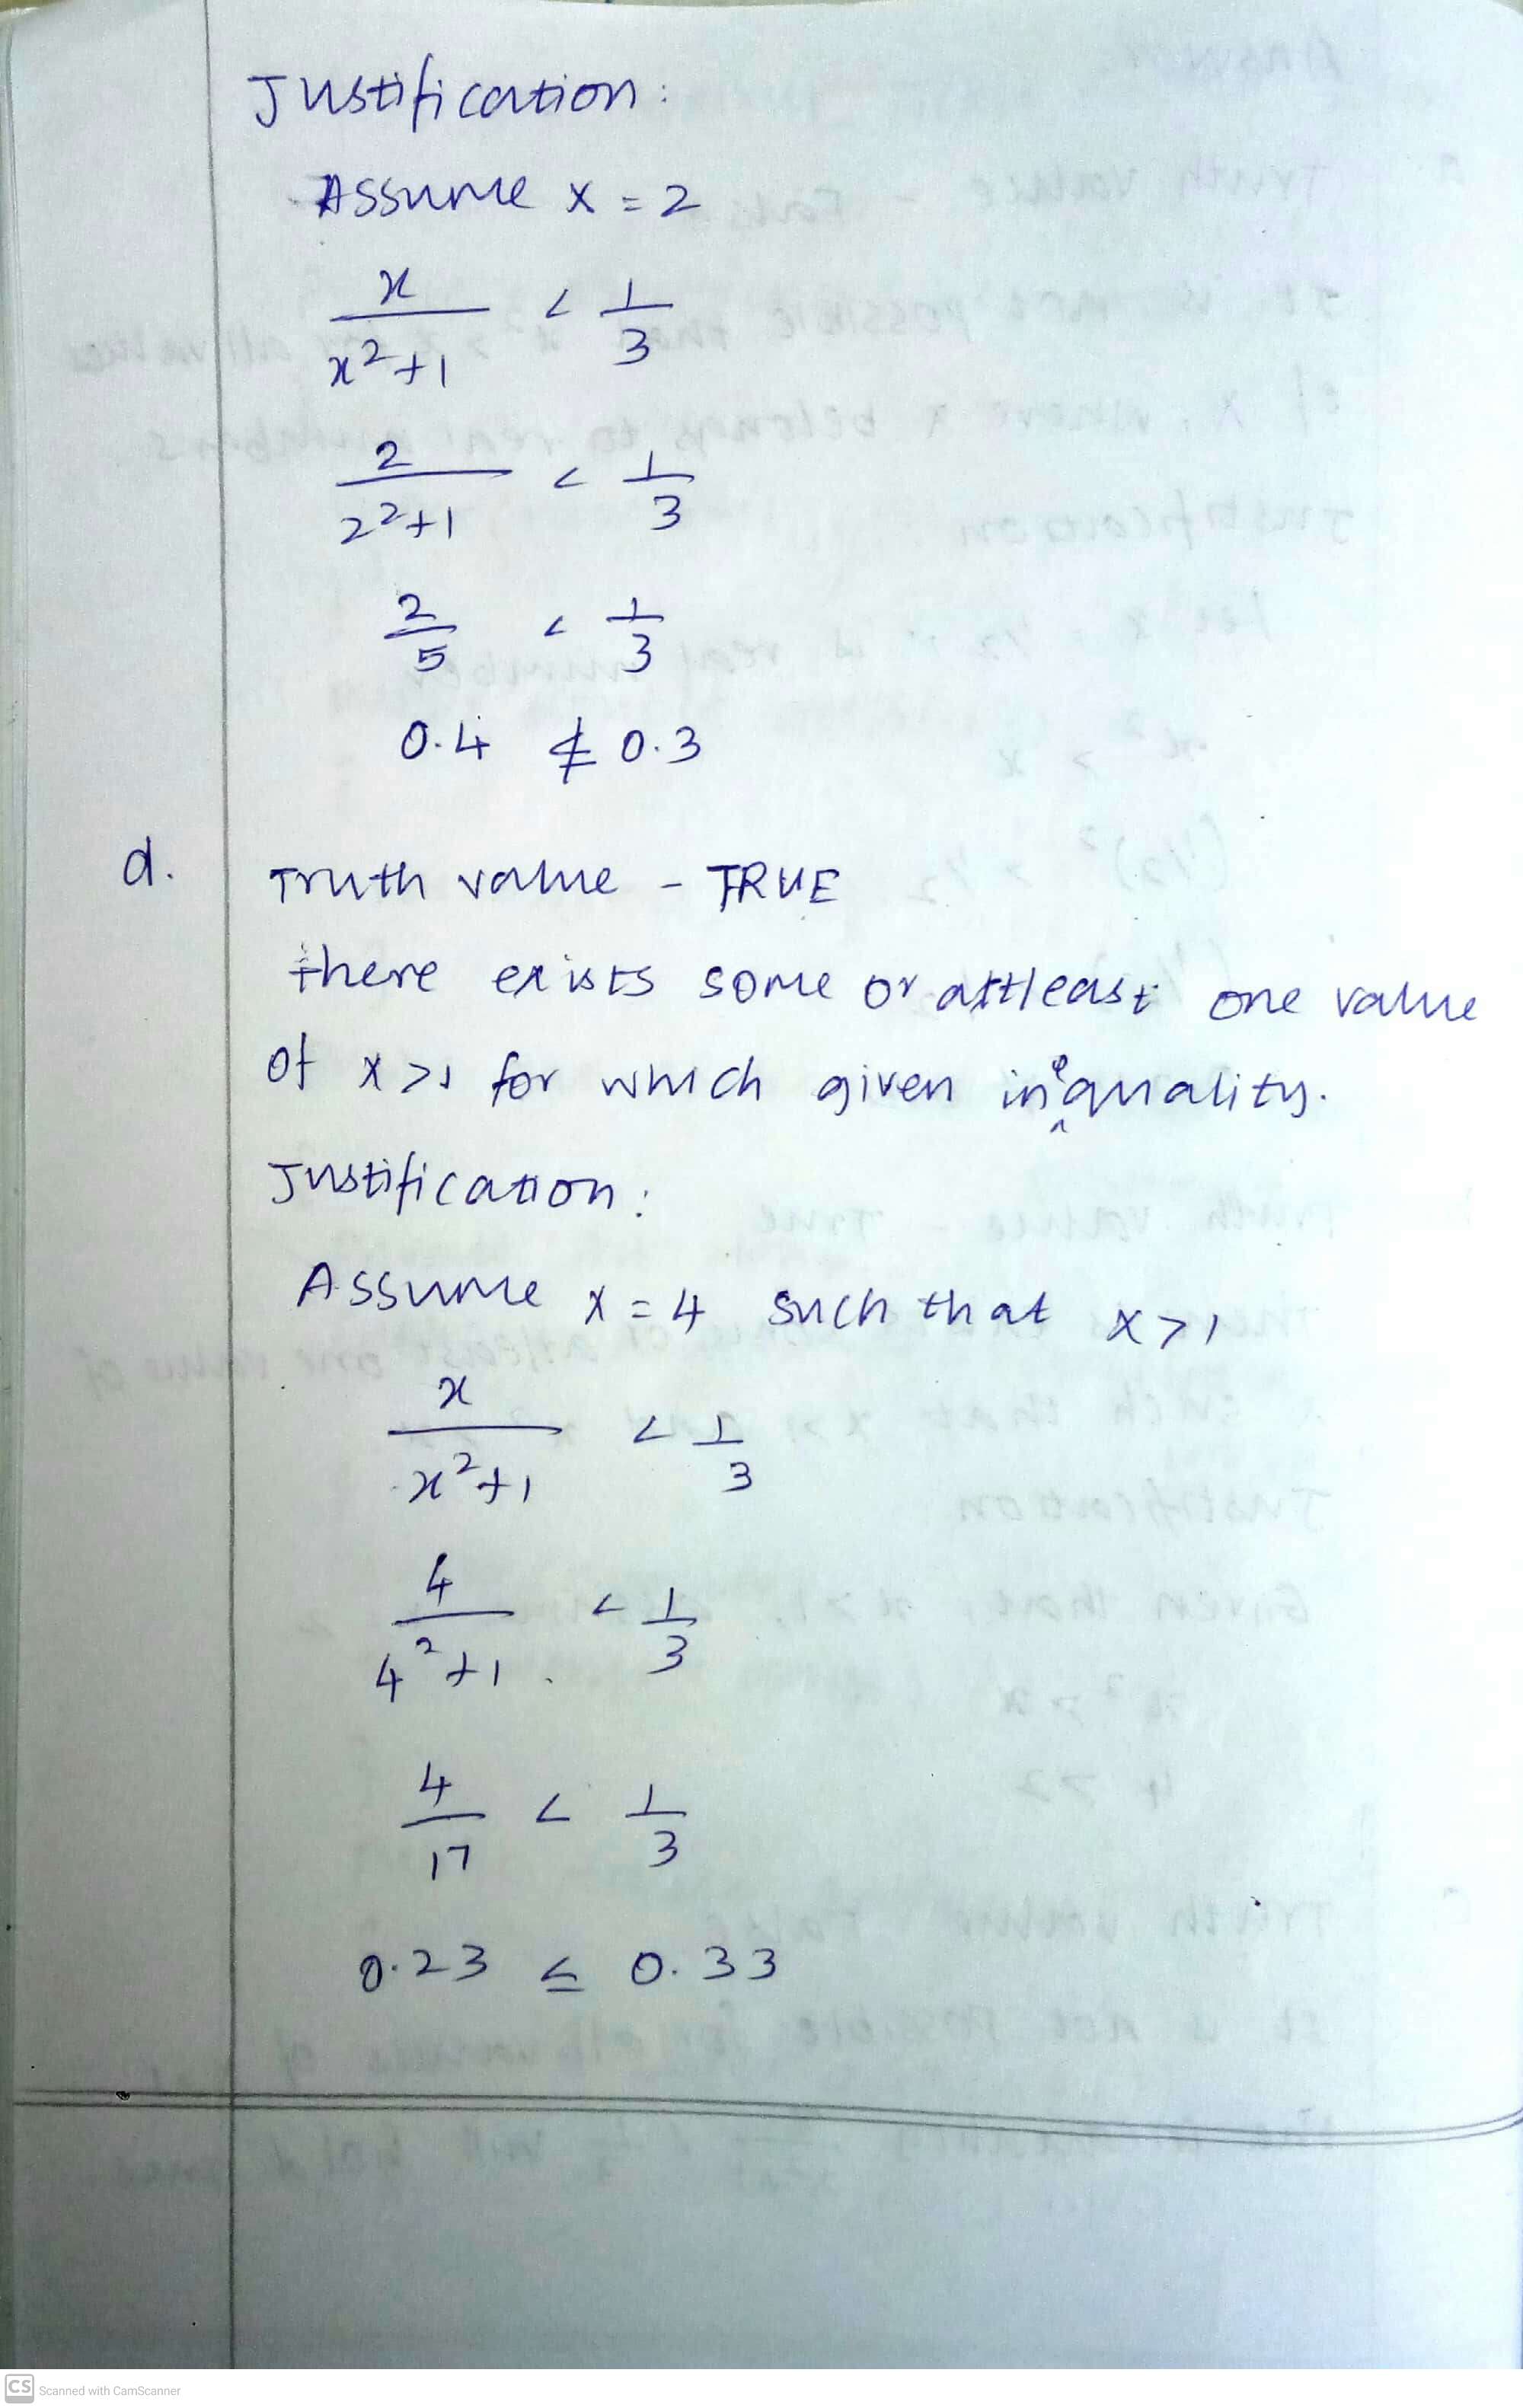 Justification:
Assume x = 2
x / x²+1 < 1/3
2 / 2²+1 < 1/3
2/5 < 1/3
0.4 ≮ 0.3
d. Truth value - TRUE
there exists some or attleast one value
of x>1 for which given inequality.
Justification:
Assume x = 4 such that x>1
x / x²+1 < 1/3
4 / 4²+1 < 1/3
4/17 < 1/3
0.23 ≤ 0.33
CS Scanned with CamScanner